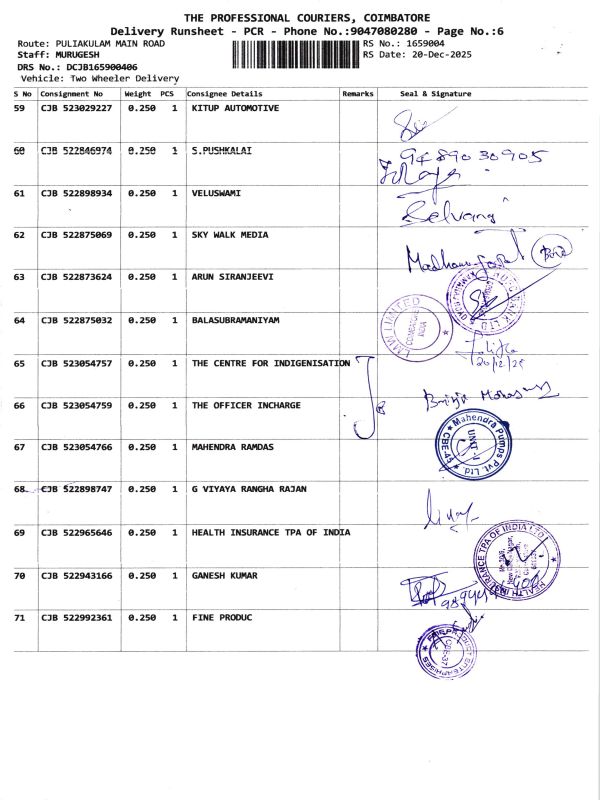 THE PROFESSIONAL COURIERS, COIMBATORE
Delivery Runsheet - PCR - Phone No.:9047080280 - Page No.:6
Route: PULIAKULAM MAIN ROAD
RS No.: 1659004
Staff: MURUGESH
RS Date: 20-Dec-2025
DRS No.: DCJB165900406
Vehicle: Two Wheeler Delivery
S No Consignment No Weight PCS Consignee Details Remarks Seal & Signature
59 CJB 523029227 0.250 1 KITUP AUTOMOTIVE
60 CJB 522846974 0.250 1 S.PUSHKALAI
9489030905
61 CJB 522898934 0.250 1 VELUSWAMI
Selvaraj
62 CJB 522875069 0.250 1 SKY WALK MEDIA
63 CJB 522873624 0.250 1 ARUN SIRANJEEVI
64 CJB 522875032 0.250 1 BALASUBRAMANIYAM
LMW LIMITED
COIMBATORE
INDIA
20/12/25
65 CJB 523054757 0.250 1 THE CENTRE FOR INDIGENISATION
66 CJB 523054759 0.250 1 THE OFFICER INCHARGE
67 CJB 523054766 0.250 1 MAHENDRA RAMDAS
Mahendra Pumps Pvt. Ltd.
UNIT-II
CBE-45
68 CJB 522898747 0.250 1 G VIYAYA RANGHA RAJAN
69 CJB 522965646 0.250 1 HEALTH INSURANCE TPA OF INDIA
HEALTH INSURANCE TPA OF INDIA LTD
70 CJB 522943166 0.250 1 GANESH KUMAR
71 CJB 522992361 0.250 1 FINE PRODUC
ENTERPRISES
CBE-37